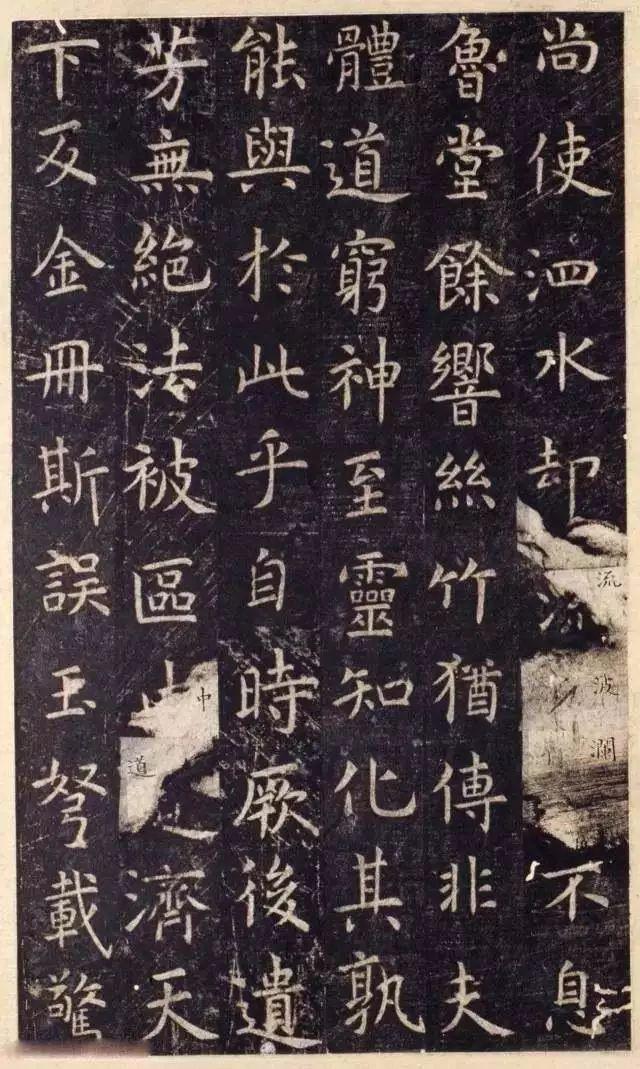 尚使泗水却流波瀾不息
魯堂餘響絲竹猶傳非夫
體道窮神至靈知化其孰
能與於此乎自時厥後遺
芳無絕法被區中道濟天
下及金冊斯誤玉弩載驚